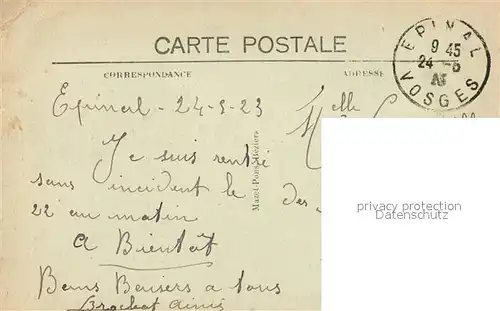 CARTE POSTALE
CORRESPONDANCE
ADRESSE
EPINAL
9 45
24 -5
VOSGES
Epinal - 24-5-23
Melle
Je suis rentré
sans incident le
22 au matin
a Bientôt
Bons Baisers a tous
des
Mazet-Pons, Béziers
privacy protection
Datenschutz